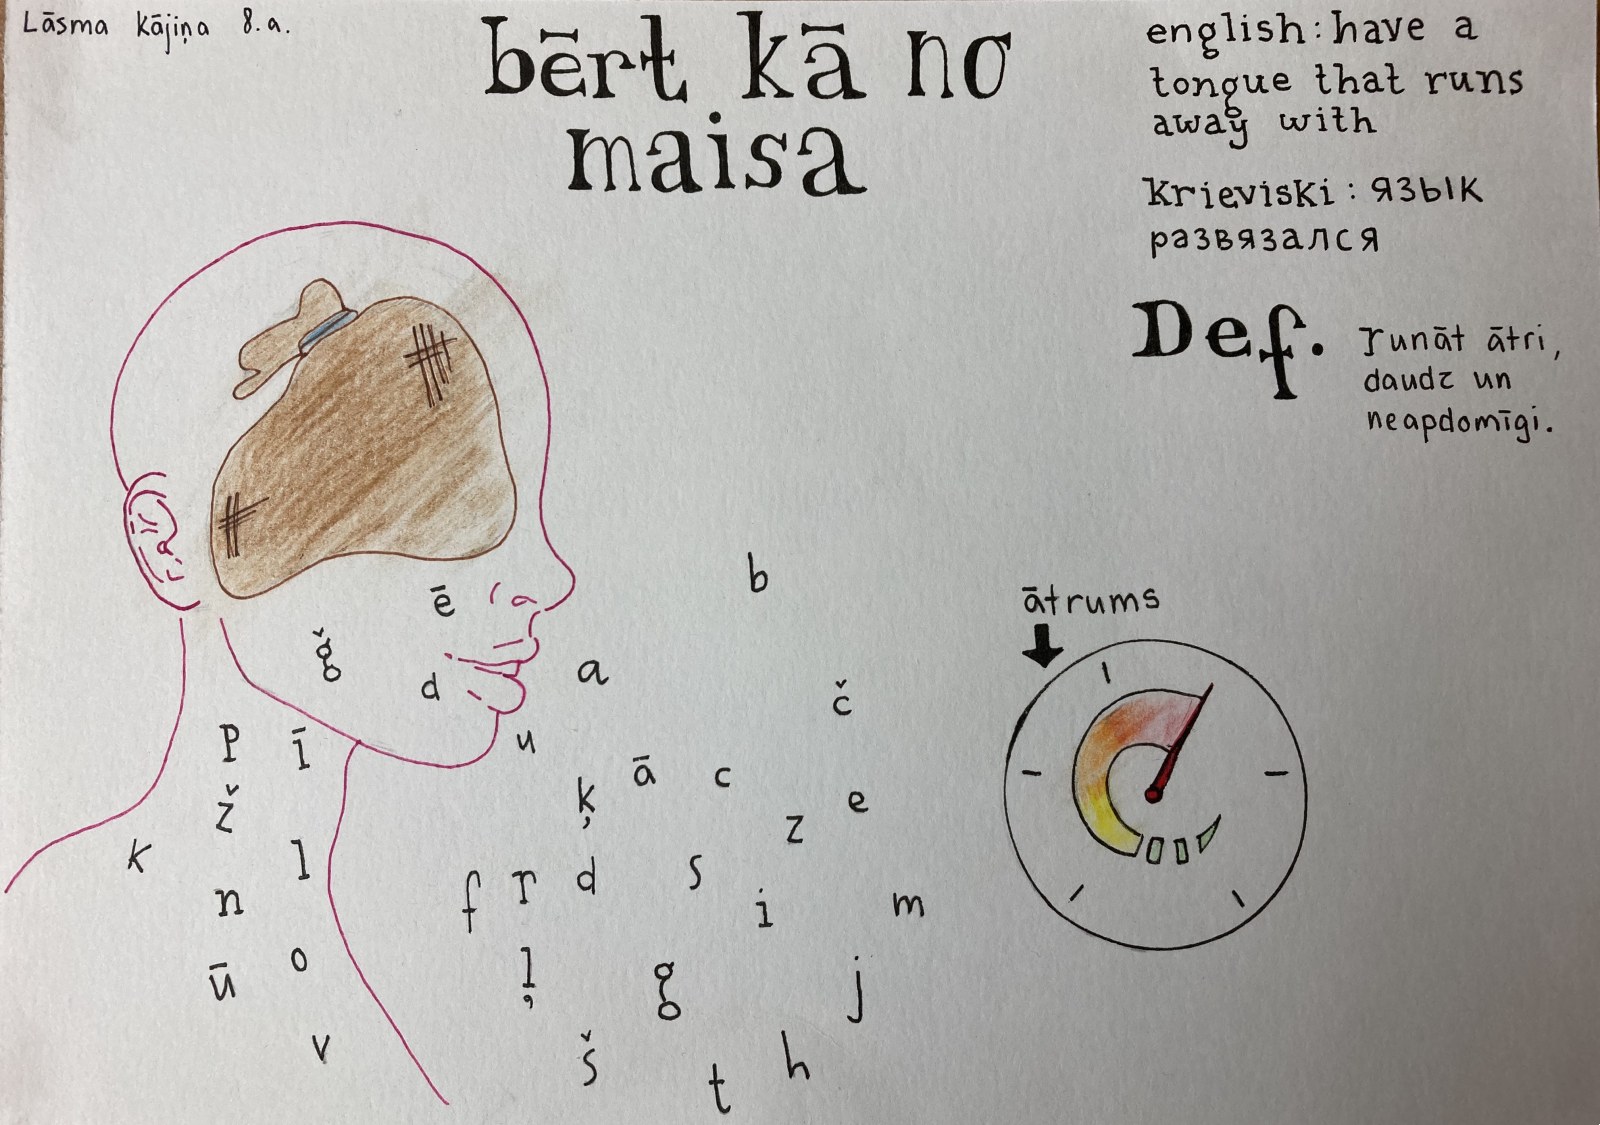 Lāsma Kājiņa 8.a.
bērt kā no
maisa
english: have a
tongue that runs
away with
krieviski: язык
развязался
Def. runāt ātri,
daudz un
neapdomīgi.
b
ē
ātrums
ğ
d
a
č
p
ī
u
ķ
ā
c
z
e
ž
k
l
f
r
d
s
i
m
n
ū
o
ļ
g
j
v
š
t
h